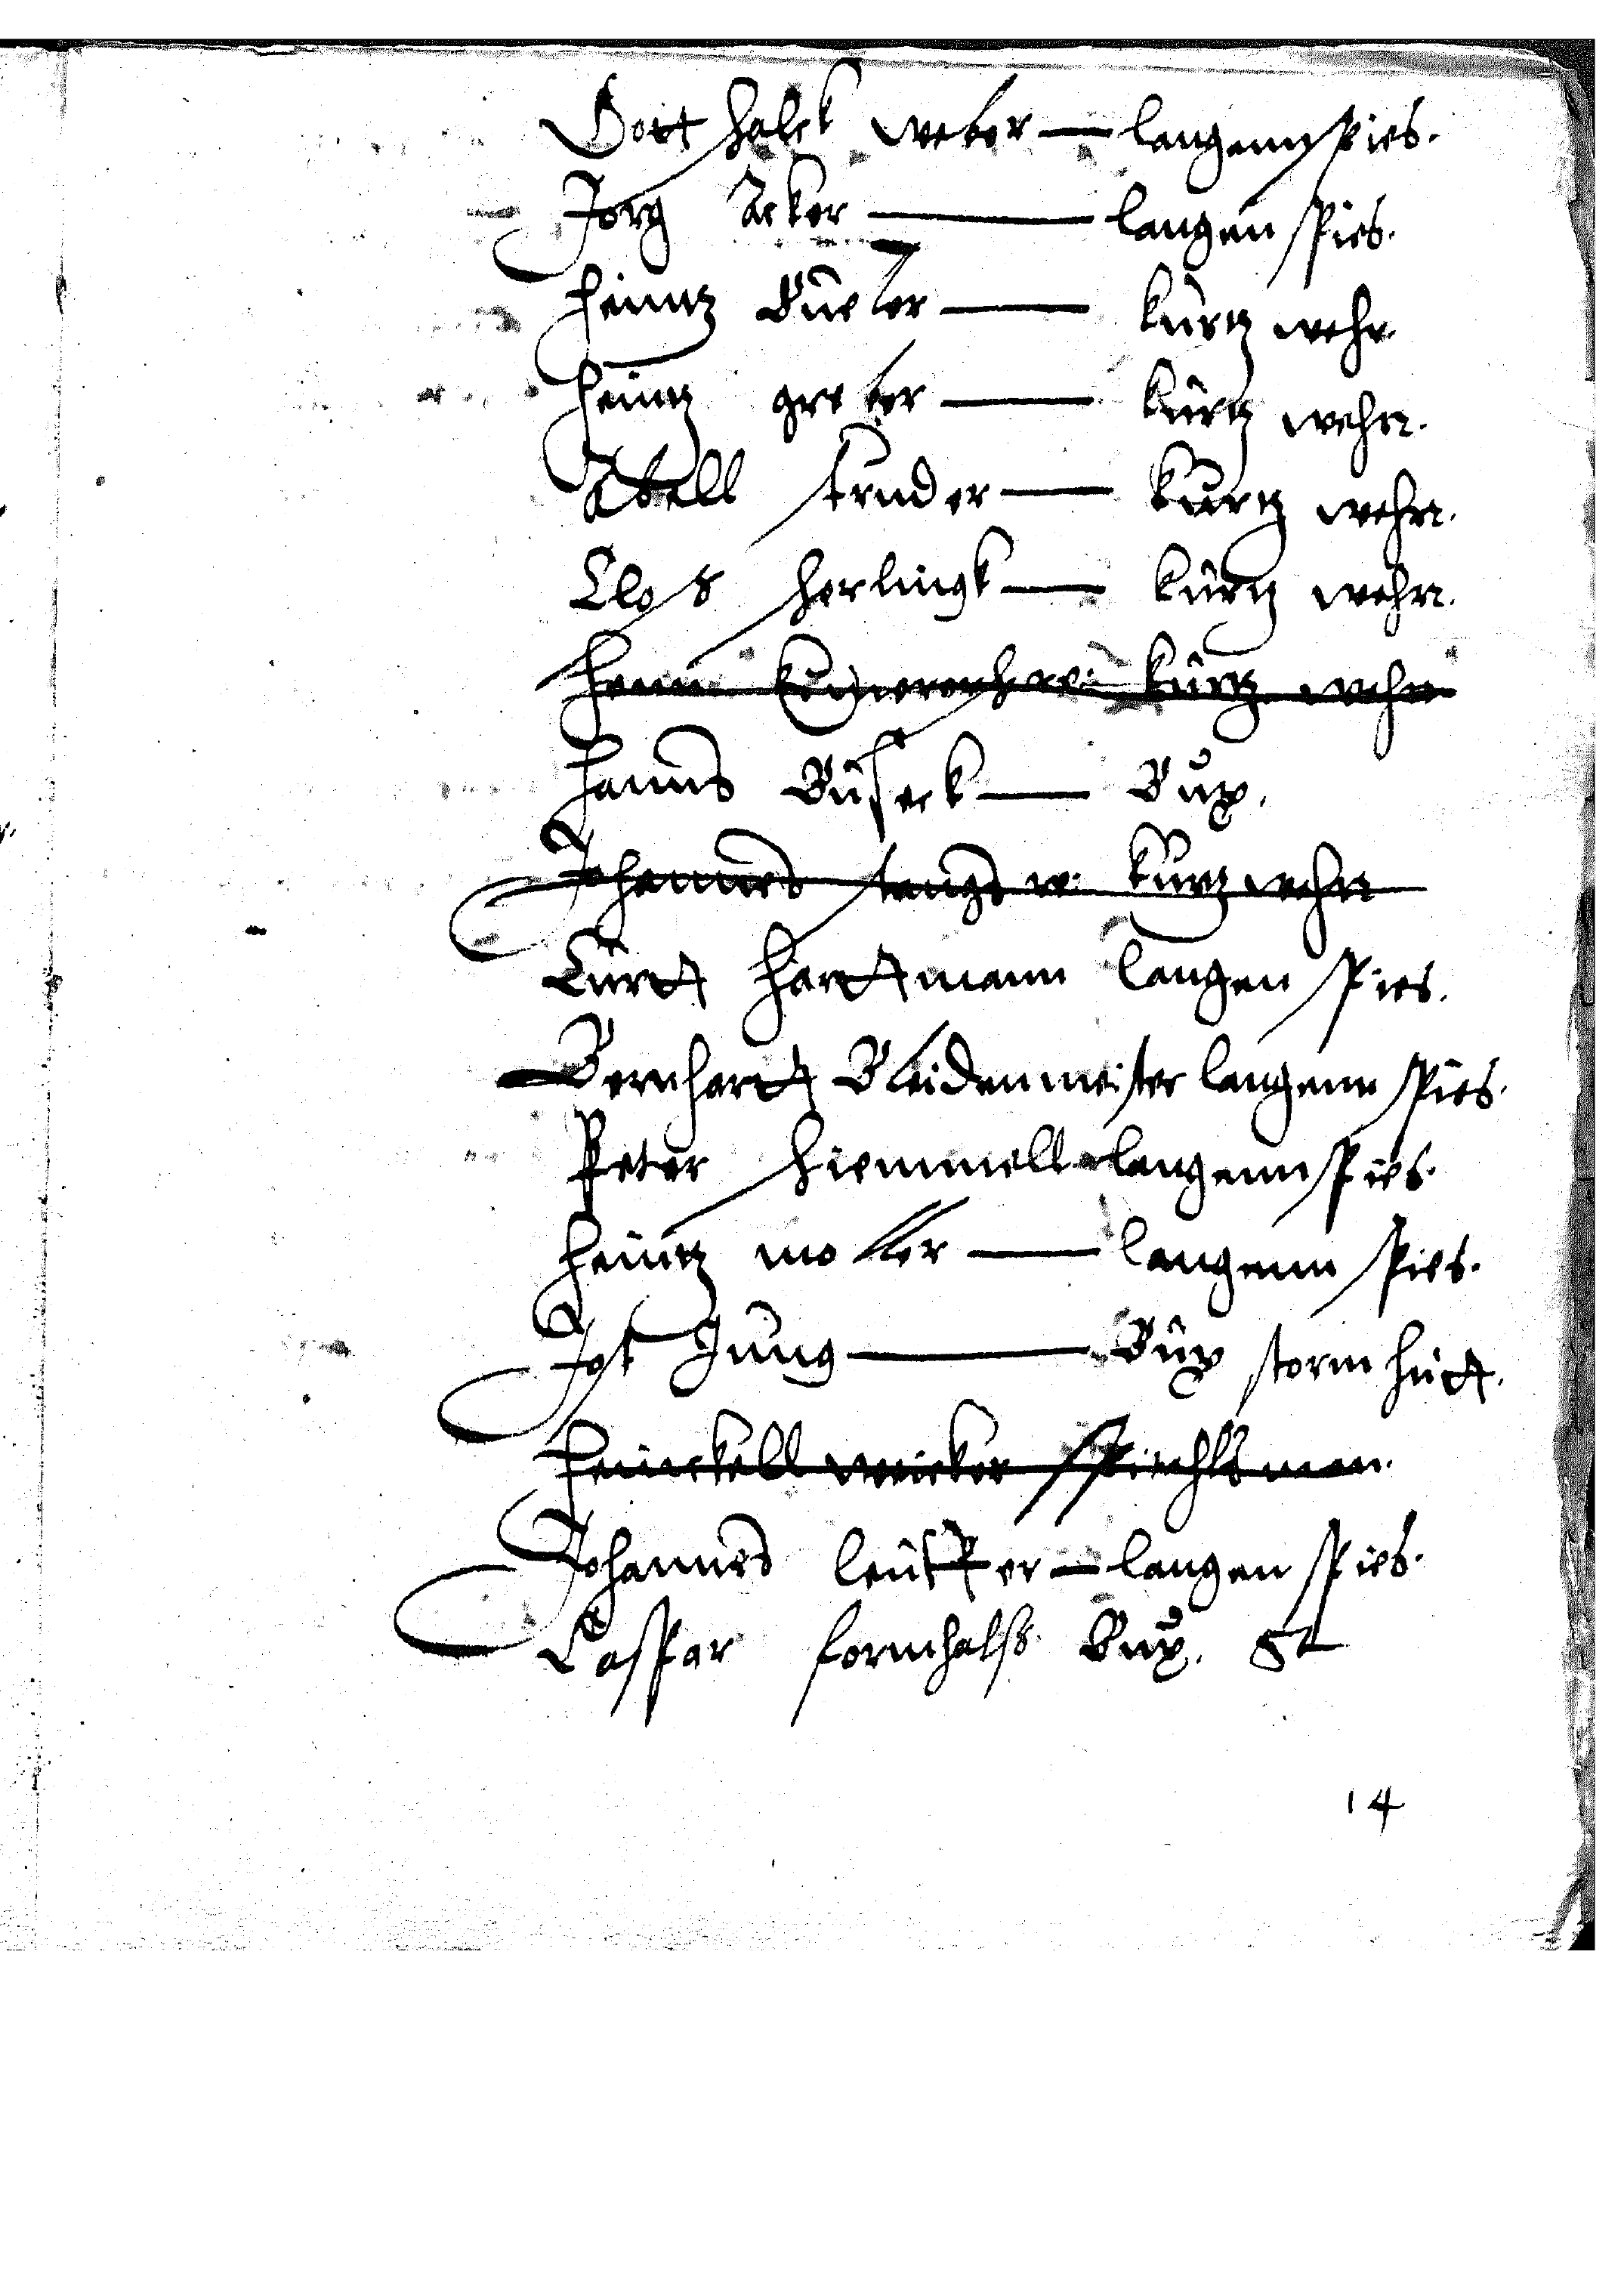 Gott schalck weber — langenn spies.
Jorg Acker — langen spies.
Heintz Bueler — kurtz wehr.
Heintz greber — kurtz wehrr.
Abell struder — kurtz wehrr.
Clos herlingk — kurtz wehrr.
Henn kurtz wehrr
Hanns Buseck — Bux.
Johannes stangs w: kurtz wehrr
Curtt Harttmann langen spies.
Bernhartt Bleidenmeister langenn spies.
Peter hiemmell langenn spies.
Heintz moller — langenn spies.
Jost Jung — Bux storm hutt.
Henckell weicker
Johannes leuffer — langen spies.
Caspar fornhalss Bux. St
14